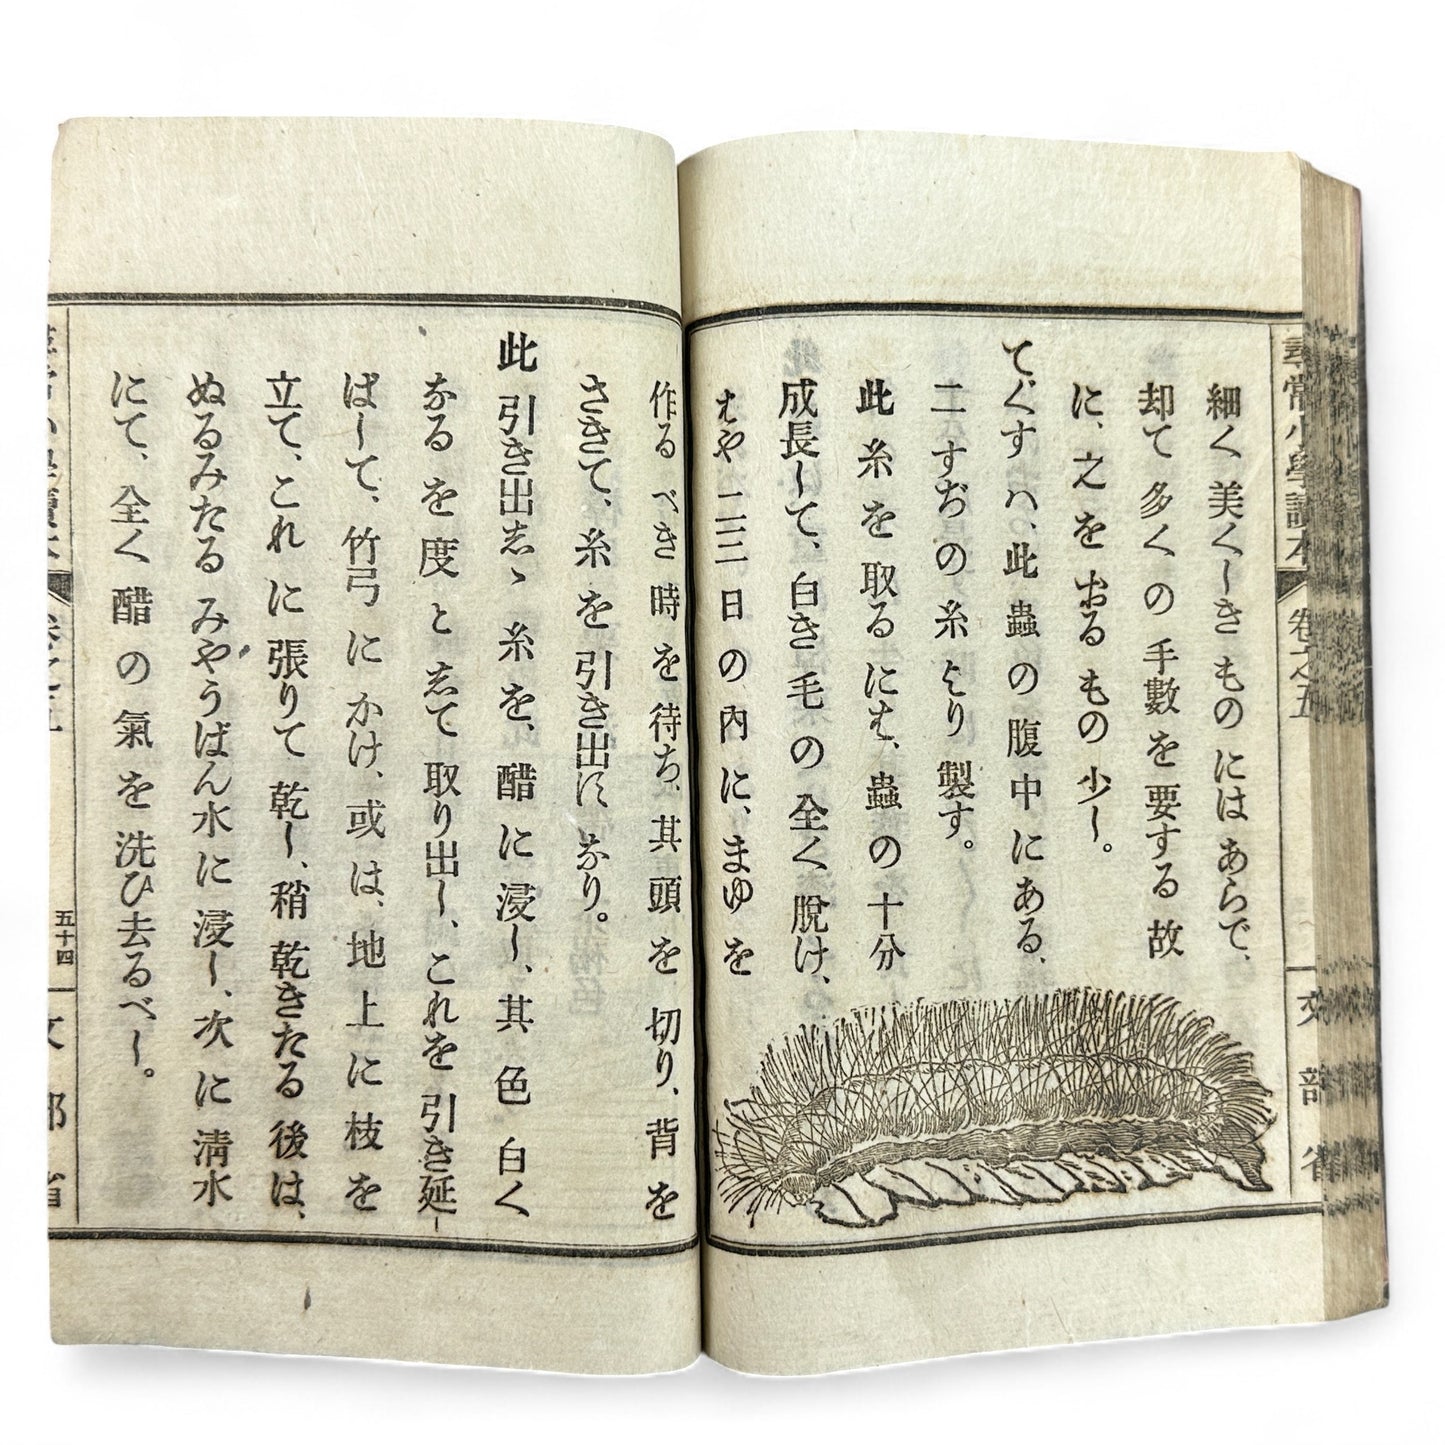 尋常小學讀本
卷之五
文部省
細く美くしきものにはあらで、
却て多くの手數を要する故
に、之をおるもの少し。
てぐすハ、此蟲の腹中にある、
二すぢの糸より製す。
此糸を取るには、蟲の十分
成長して、白き毛の全く脫け、
はや二三日の內に、まゆを
作るべき時を待ち、其頭を切り、背を
さきて、糸を引き出すなり。
此引き出しゝ糸を、醋に浸し、其色白く
なるを度として取り出し、これを引き延
ばして、竹弓にかけ、或は、地上に枝を
立て、これに張りて乾し、稍乾きたる後は、
ぬるみたるみやうばん水に浸し、次に淸水
にて、全く醋の氣を洗ひ去るべし。
五十四